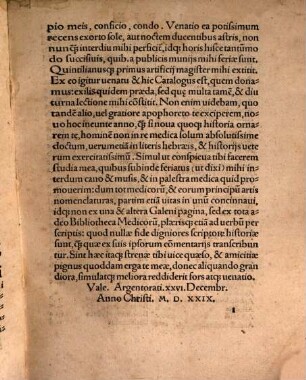 pio meis, conficio, condo. Venatio ea potissimum
recens exorto sole, aut noctem ducentibus astris, non
nunꝗ̃ interdiu mihi perficit̃, idq̃ horis hisce tantũmo
do succisiuis, quib. a publicis munijs mihi feriæ sunt.
Quintilianusq̃ primus artificij magister mihi extitit.
Ex eo igitur venatu &amp; hic Catalogus est, quem do
damus: exilis quidem præda, sed quę multa tamẽ, &amp; diu
turna lectione mihi cõstitit. Non enim uidebam, quo
tandẽ alio, uel gratiore apophoreto te exciperem, no
uo hoc ineunte anno, ꝗ̃ si noua quoq̃ historia ornarem
te, hominẽ non in re medica solum absolutissime
doctum, uerumetiã in literis hebræis, &amp; historijs vete
rum exercitatissimũ. Simul ut conspicua tibi facerem
studia mea, quibus subinde feriatus (ut dixi) mihi in
terdum cano &amp; musis, &amp; in palestra medica quid pro
mouerim: dum tot medicorũ, &amp; eorum principũ artis
nomenclaturas, partim etiã vitas in unũ concinnaui,
idq̃ non ex una &amp; altera Galeni pagina, sed ex tota
adeo Bibliotheca Medicorũ, plæriscq̃ etiã ad uerbũ per
scriptis: quod nullæ fide digniores scriptore historiæ
sunt, ꝗ̃ quæ ex suis ipsorum cõmentarijs transcribun
tur. Sint hæc itaq̃ strenæ tibi uice quæso, &amp; amicitiæ
pignus quoddam erga te meæ, donec aliquando gran
diora, simulatq̃ meliora reddiderit sors atq̃ venatio.
Vale. Argentorati. xxvi. Decembr.
Anno Christi. M. D. XXIX.